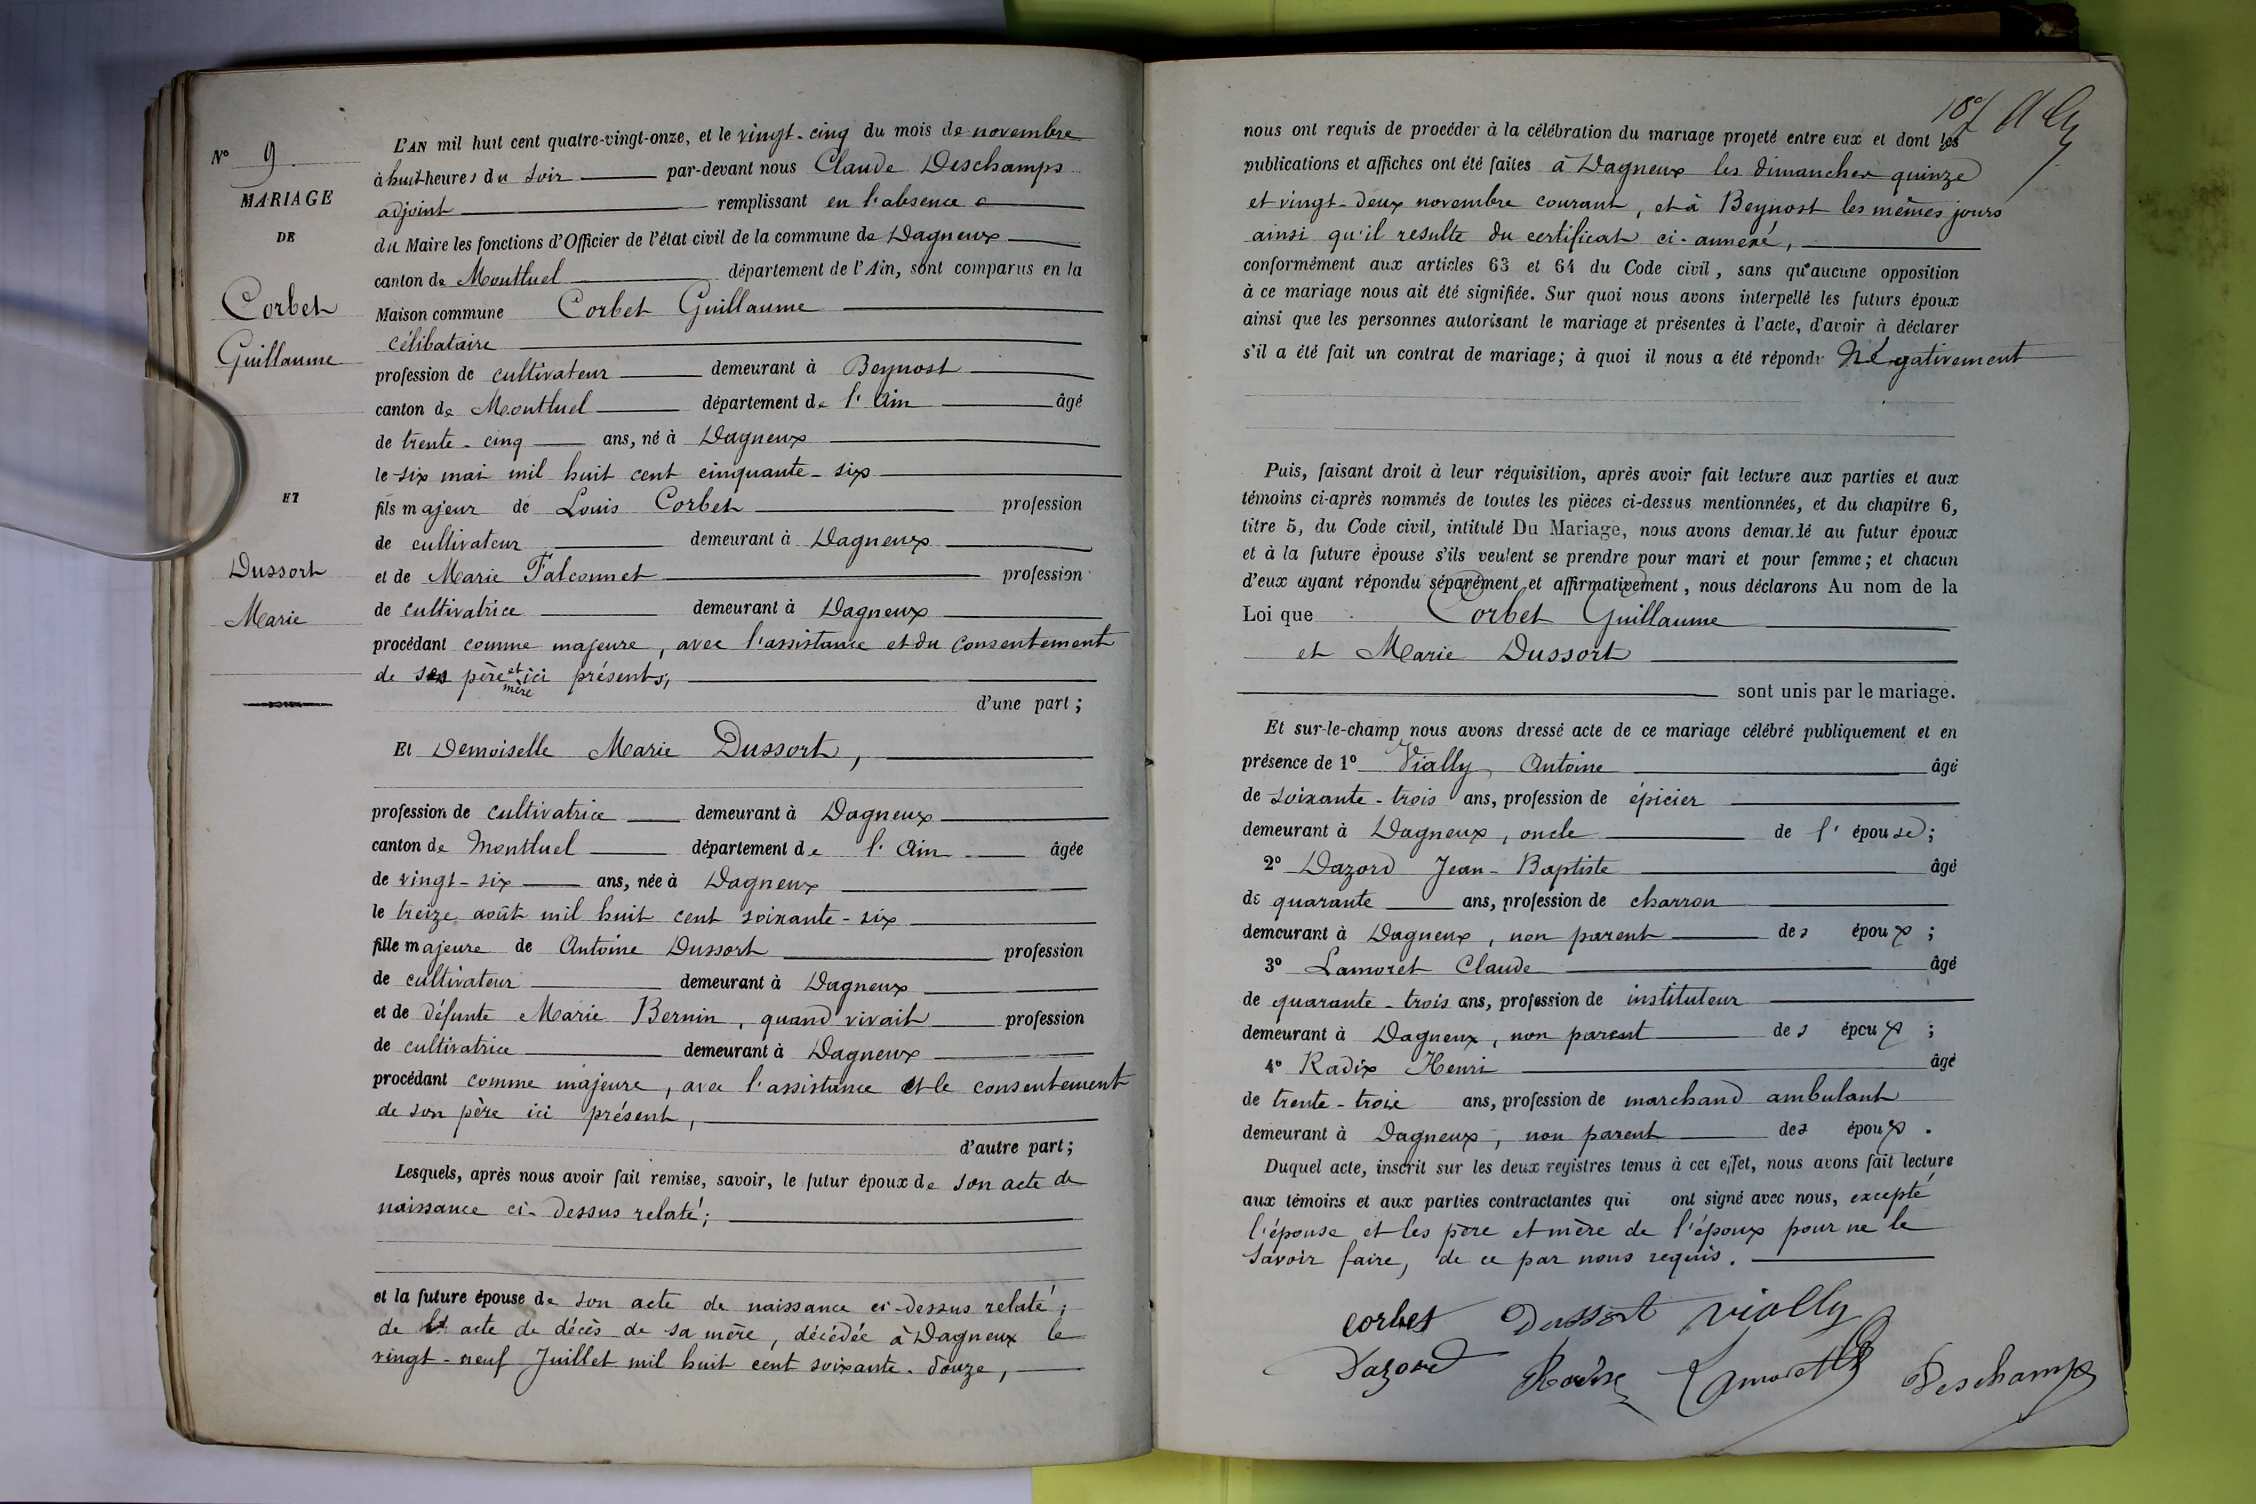 N° 9.
MARIAGE
DE
Corbet
Guillaume
ET
Dussort
Marie
L'AN mil huit cent quatre-vingt-onze, et le vingt-cinq du mois de novembre
à huit heures du soir par-devant nous Claude Deschamps
adjoint remplissant en l'absence
du Maire les fonctions d'Officier de l'état civil de la commune de Dagneux
canton de Montluel département de l'Ain, sont comparus en la
Maison commune Corbet Guillaume
célibataire
profession de cultivateur demeurant à Beynost
canton de Montluel département de l'Ain âgé
de trente-cinq ans, né à Dagneux
le six mai mil huit cent cinquante-six
fils majeur de Louis Corbet profession
de cultivateur demeurant à Dagneux
et de Marie Falconnet profession
de cultivatrice demeurant à Dagneux
procédant comme majeure, avec l'assistance et du consentement
de ses père et mère ici présents,
d'une part;
Et Demoiselle Marie Dussort,
profession de cultivatrice demeurant à Dagneux
canton de Montluel département de l'Ain âgée
de vingt-six ans, née à Dagneux
le treize août mil huit cent soixante-six
fille majeure de Antoine Dussort profession
de cultivateur demeurant à Dagneux
et de défunte Marie Bernin, quand vivait profession
de cultivatrice demeurant à Dagneux
procédant comme majeure, avec l'assistance et le consentement
de son père ici présent,
d'autre part;
Lesquels, après nous avoir fait remise, savoir, le futur époux de son acte de
naissance ci-dessus relaté;
et la future épouse de son acte de naissance ci-dessus relaté;
de acte de décès de sa mère, décédée à Dagneux le
vingt-neuf Juillet mil huit cent soixante-douze,
nous ont requis de procéder à la célébration du mariage projeté entre eux et dont les
publications et affiches ont été faites à Dagneux les dimanches quinze
et vingt-deux novembre courant, et à Beynost les mêmes jours
ainsi qu'il resulte du certificat ci-annexé,
conformément aux articles 63 et 64 du Code civil, sans qu'aucune opposition
à ce mariage nous ait été signifiée. Sur quoi nous avons interpellé les futurs époux
ainsi que les personnes autorisant le mariage et présentes à l'acte, d'avoir à déclarer
s'il a été fait un contrat de mariage; à quoi il nous a été répondu Négativement
Puis, faisant droit à leur réquisition, après avoir fait lecture aux parties et aux
témoins ci-après nommés de toutes les pièces ci-dessus mentionnées, et du chapitre 6,
titre 5, du Code civil, intitulé Du Mariage, nous avons demandé au futur époux
et à la future épouse s'ils veulent se prendre pour mari et pour femme; et chacun
d'eux ayant répondu séparément et affirmativement, nous déclarons Au nom de la
Loi que Corbet Guillaume
et Marie Dussort
sont unis par le mariage.
Et sur-le-champ nous avons dressé acte de ce mariage célébré publiquement et en
présence de 1° Vially Antoine âgé
de soixante-trois ans, profession de épicier
demeurant à Dagneux, oncle de l'épouse;
2° Dazord Jean-Baptiste âgé
de quarante ans, profession de charron
demeurant à Dagneux, non parent des époux;
3° Lamoret Claude âgé
de quarante-trois ans, profession de instituteur
demeurant à Dagneux, non parent des époux;
4° Radix Henri âgé
de trente-trois ans, profession de marchand ambulant
demeurant à Dagneux, non parent des époux.
Duquel acte, inscrit sur les deux registres tenus à cet effet, nous avons fait lecture
aux témoins et aux parties contractantes qui ont signé avec nous, excepté
l'épouse et les père et mère de l'époux pour ne le
savoir faire, de ce par nous requis.
corbet Dussort Vially
Dazord Radix Lamoret Deschamps